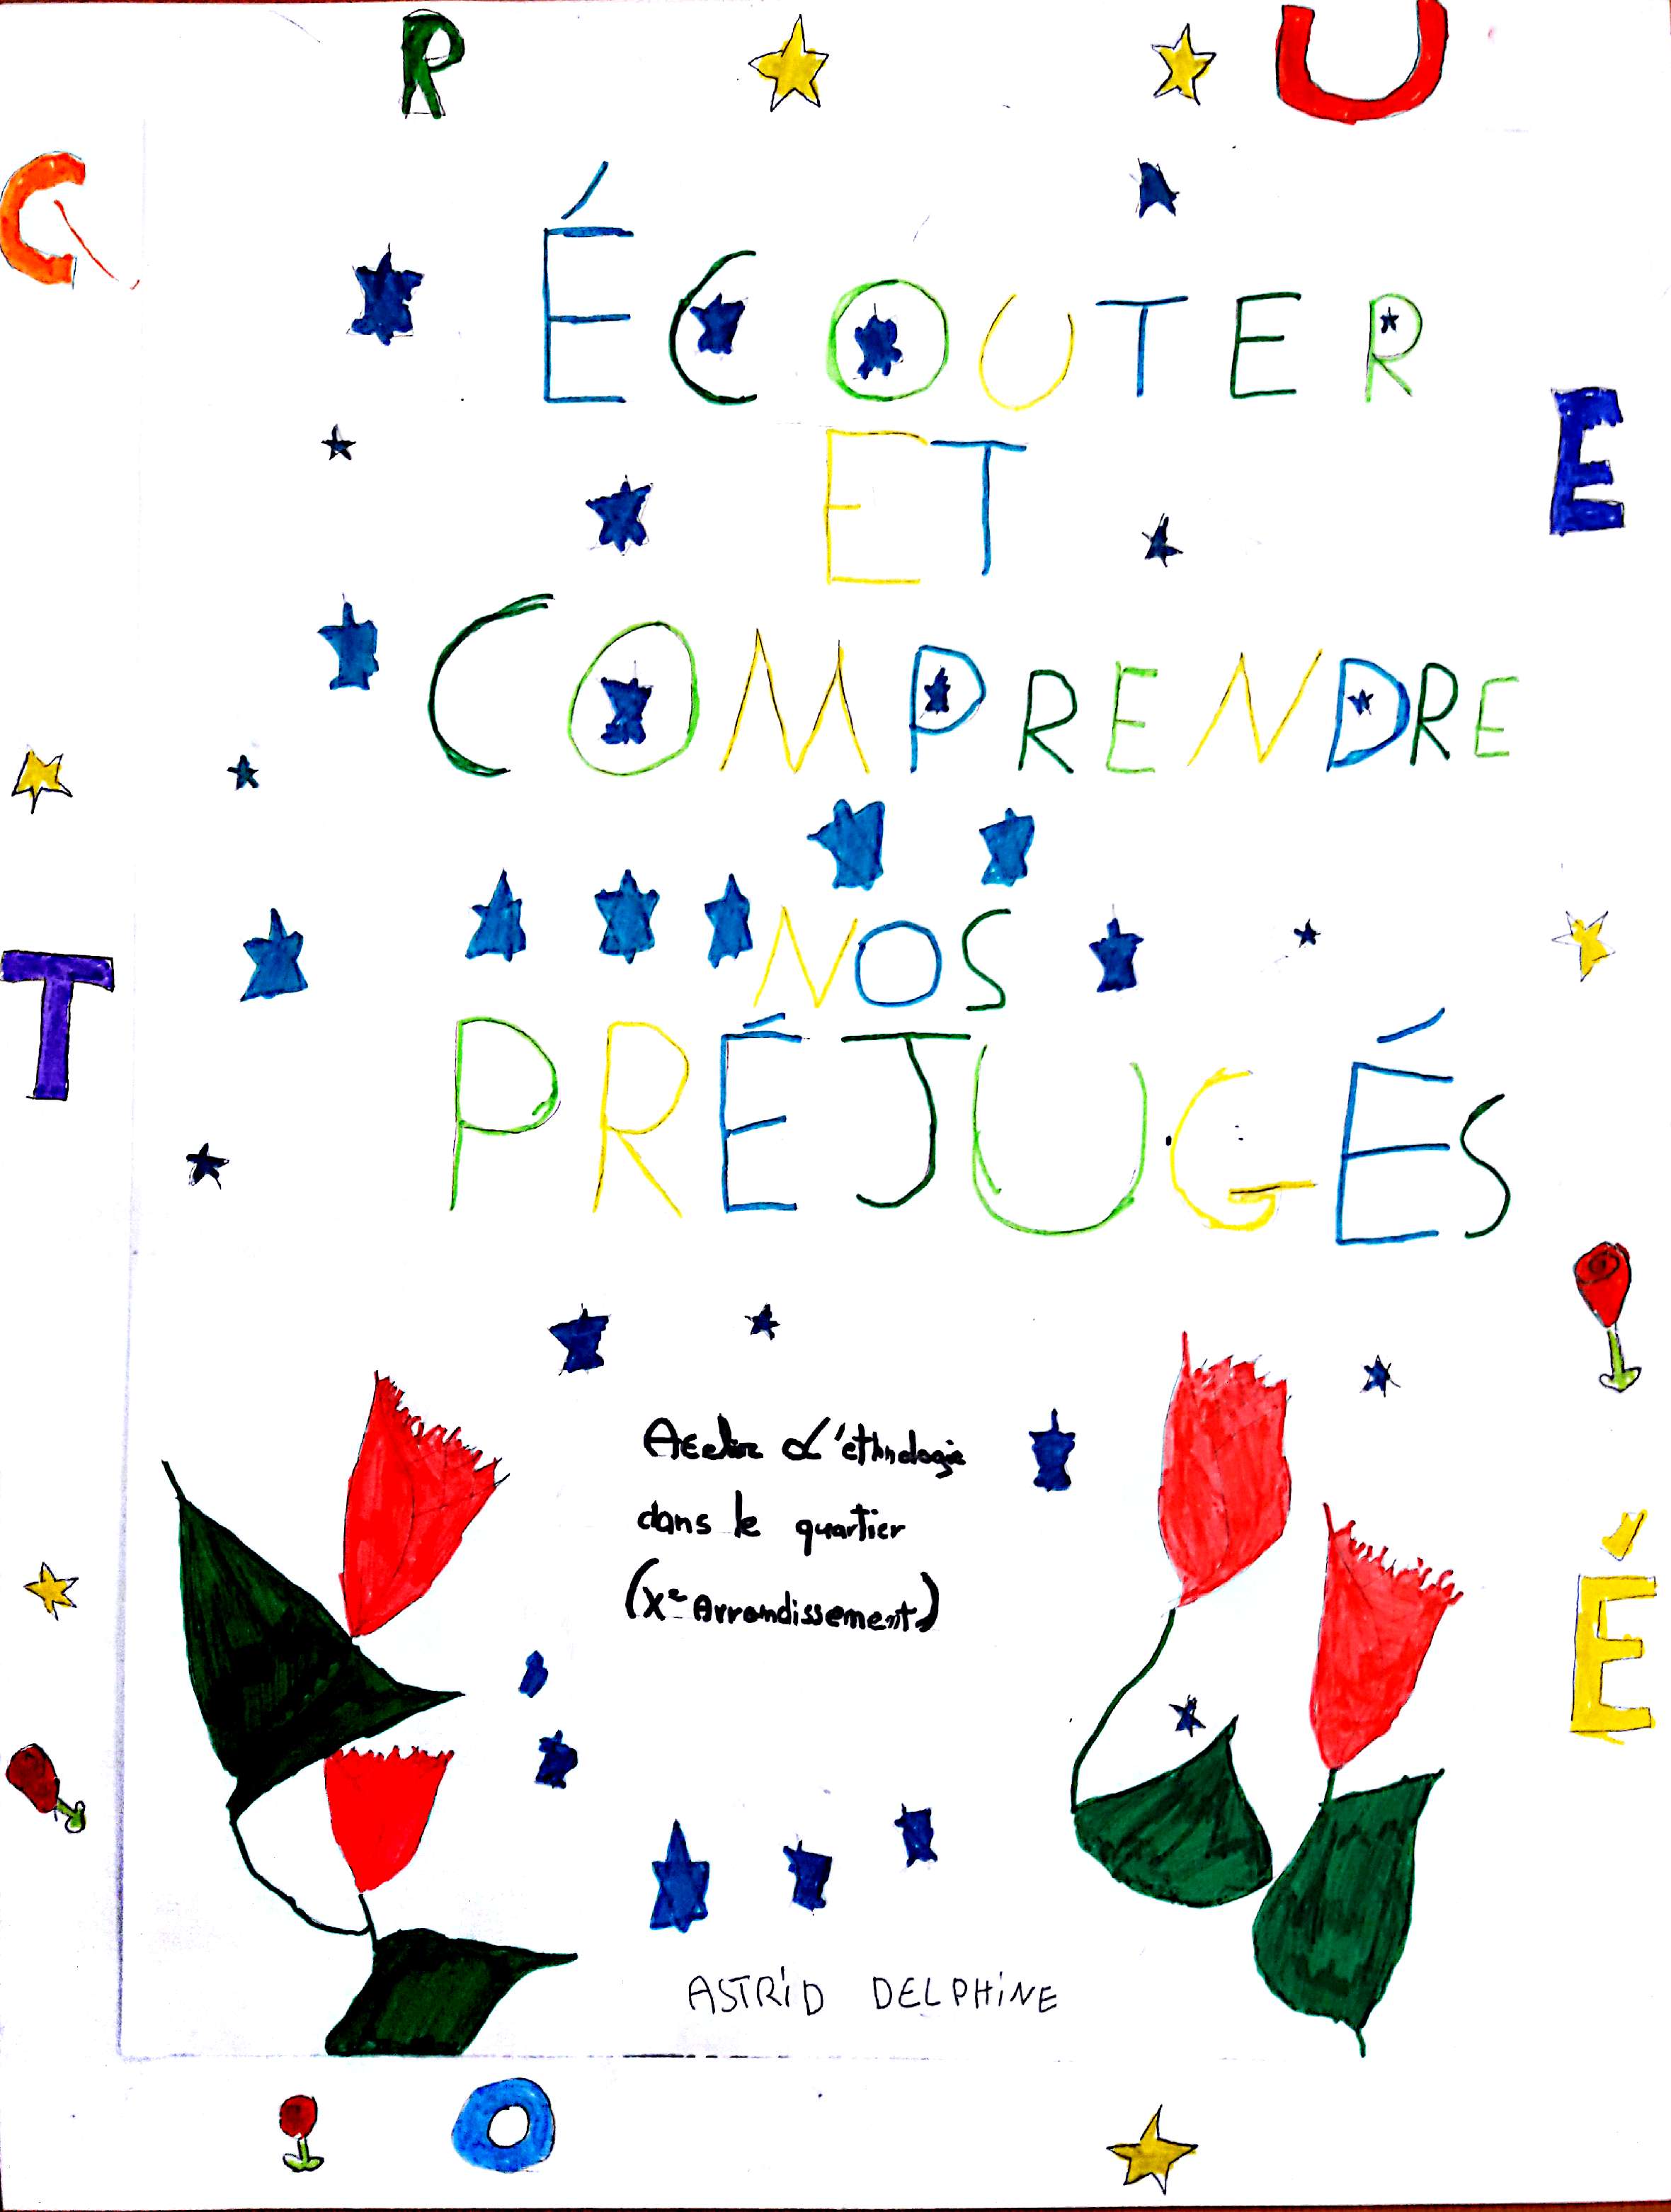 R U
C
ÉCOUTER
ET
E
COMPRENDRE
NOS
T
PRÉJUGÉS
Atelier d'ethnologie
dans le quartier
(Xe Arrondissement)
É
ASTRiD DELPHiNE
O